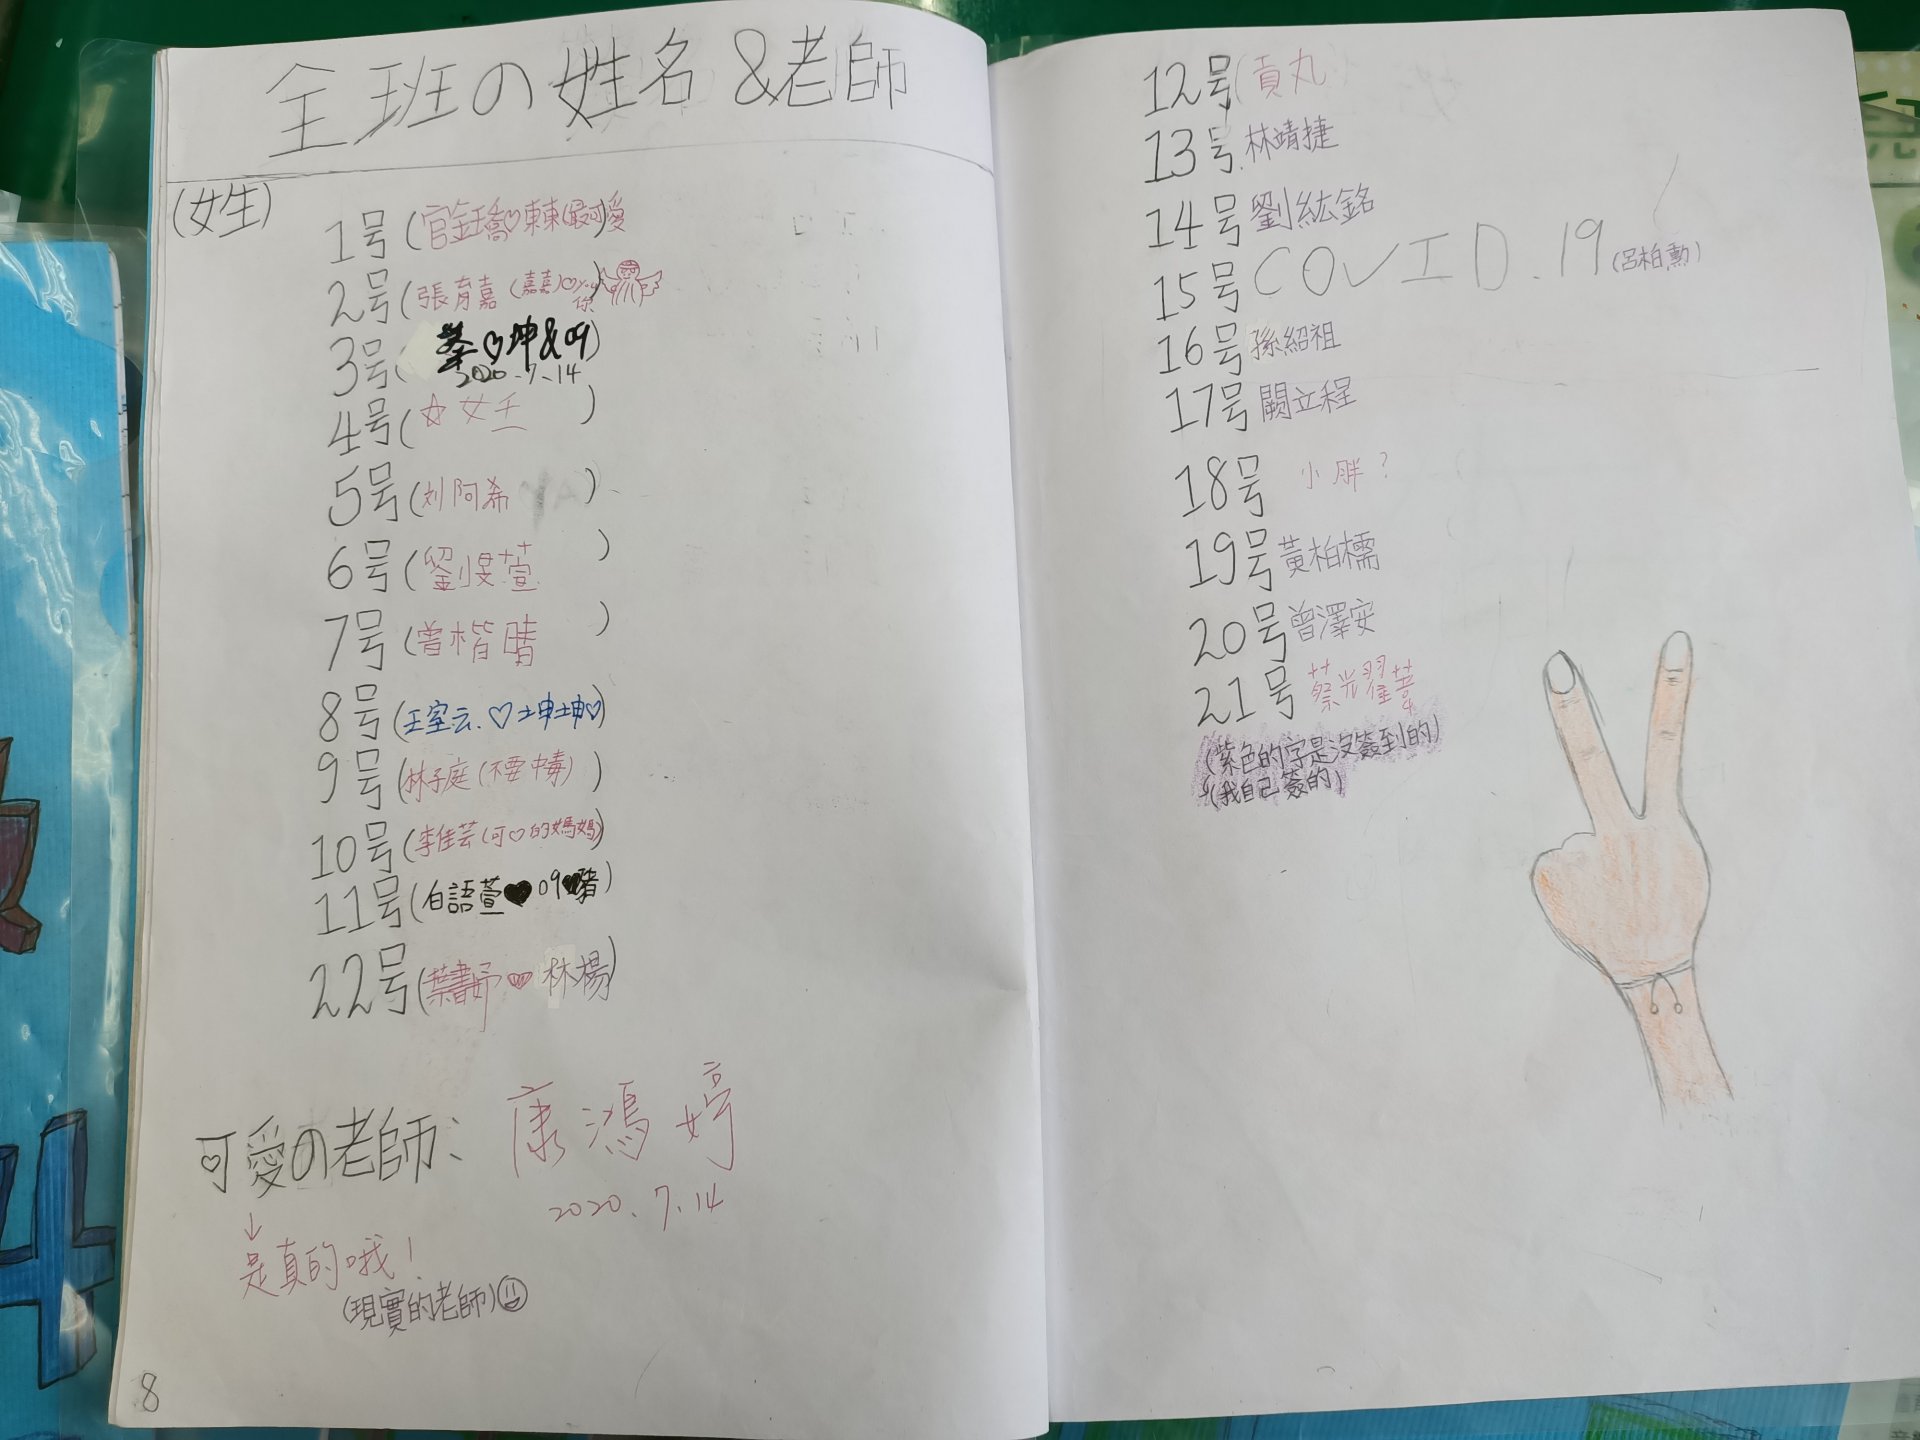 全班の姓名&老師
(女生)
1号(官金璚♡東東(最可愛)
2号(張育嘉(嘉嘉)♡you你)
3号(蔡♡坤&09)
2020.7.14
4号(☆女王)
5号(刘阿希)
6号(劉旻萱)
7号(曾楷晴)
8号(王室云.♡坤坤♡)
9号(林子庭(不要中毒))
10号(李佳芸(可♡的媽媽))
11号(白語萱♥09♥豬)
22号(葉書妤♡林楊)
可愛の老師:康鴻婷
2020.7.14
↓
是真的哦!
(現實的老師)
8
12号(貢丸)
13号.林靖捷
14号劉紘銘
15号COVID.19(呂柏勳)
16号孫紹祖
17号闕立程
18号 小胖?
19号黃柏檽
20号曾澤安
21号蔡光耀葦
(紫色的字是沒簽到的)
(我自己簽的)